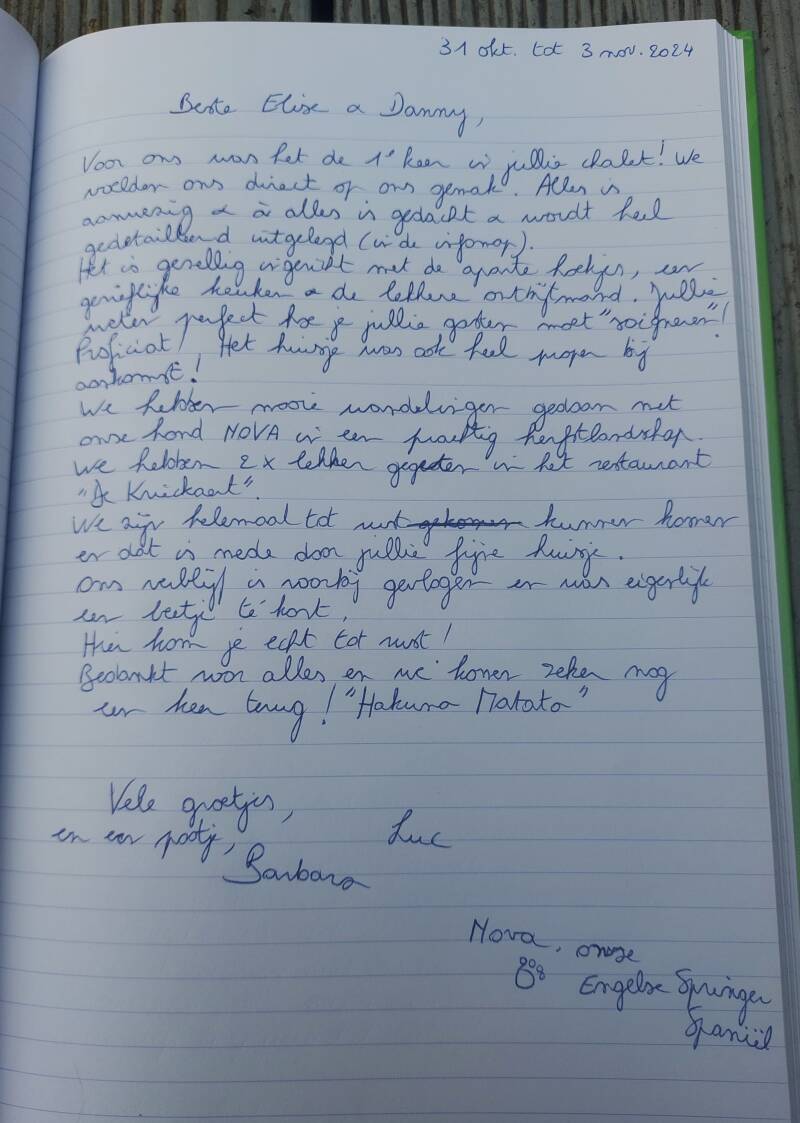 31 okt. tot 3 nov. 2024
Beste Elise & Danny,
Voor ons was het de 1e keer in jullie chalet! We
voelden ons direct op ons gemak. Alles is
aanwezig & à alles is gedacht & wordt heel
gedetailleerd uitgelegd (in de infomap).
Het is gezellig ingericht met de aparte hoekjes, een
geriefelijke keuken & de lekkere ontbijtmand. Jullie
weten perfect hoe je jullie gasten moet "soigneren"!
Proficiat! Het huisje was ook heel proper bij
aankomst!
We hebben mooie wandelingen gedaan met
onze hond NOVA in een prachtig herfstlandschap.
We hebben 2x lekker gegeten in het restaurant
"De Kruickaert".
We zijn helemaal tot rust gekomen kunnen komen
en dat is mede door jullie fijne huisje.
Ons verblijf is voorbij gevlogen en was eigenlijk
een beetje té kort.
Hier kom je echt tot rust!
Bedankt voor alles en we komen zeker nog
een keer terug! "Hakuna Matata"
Vele groetjes,
en een pootje,
Luc
Barbara
Nova, onze
Engelse Springer
Spaniël